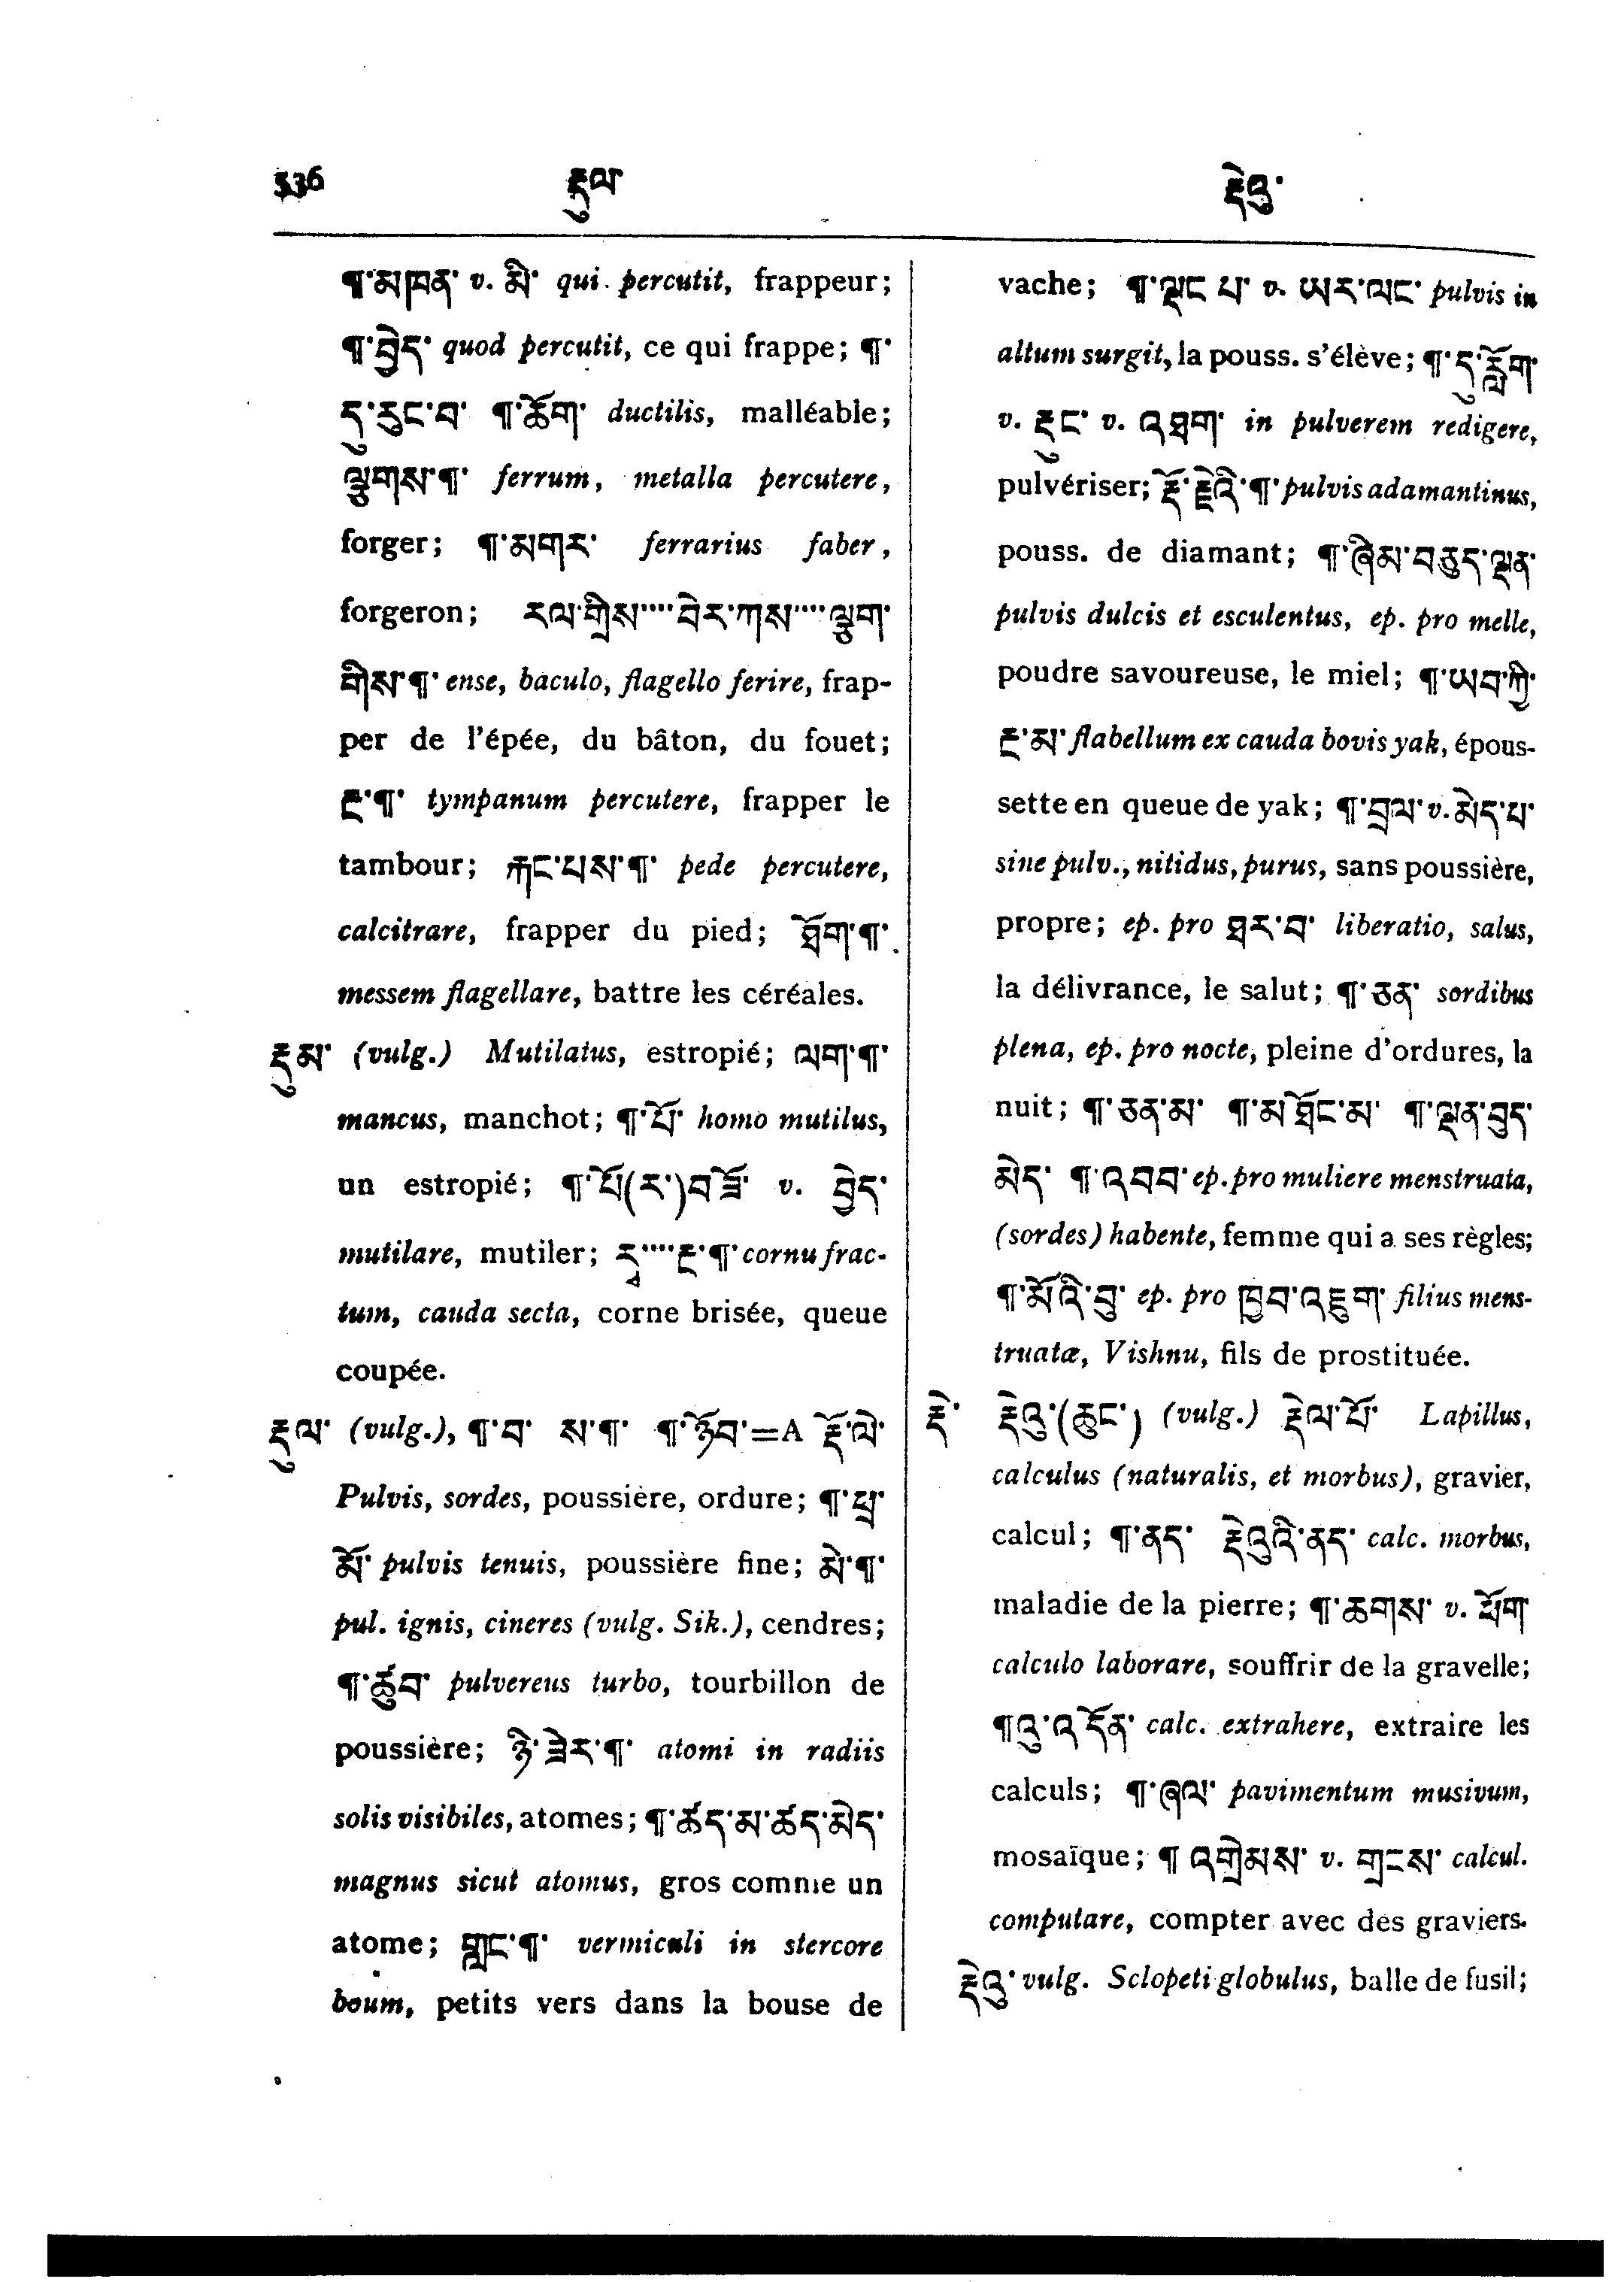 536 རྡུལ་ རྡེའུ་
¶་མཁན་ v. མི་ qui percutit, frappeur;
¶་བྱེད་ quod percutit, ce qui frappe; ¶་
དུ་རུང་བ་ ¶་ཆོག་ ductilis, malléable;
ལྕུགས་¶་ ferrum, metalla percutere,
forger; ¶་མགར་ ferrarius faber,
forgeron; རལ་གྲིས་་་་་བེར་ཀས་་་་་ལྕུག་
གིས་¶་ ense, baculo, flagello ferire, frap-
per de l'épée, du bâton, du fouet;
རྔ་¶་ tympanum percutere, frapper le
tambour; རྐང་པས་¶་ pede percutere,
calcitrare, frapper du pied; ཐོག་¶་
messem flagellare, battre les céréales.
རྡུམ་ (vulg.) Mutilatus, estropié; ལག་¶་
mancus, manchot; ¶་པོ་ homo mutilus,
un estropié; ¶་པོ(ར་)བཟོ་ v. བྱེད་
mutilare, mutiler; རྭ་་་་་རྔ་¶་ cornu frac-
tum, cauda secta, corne brisée, queue
coupée.
རྡུལ་ (vulg.), ¶་བ་ ས་¶་ ¶་ཉོབ་=A རྡོ་ལེ་
Pulvis, sordes, poussière, ordure; ¶་ཕྲ་
མོ་ pulvis tenuis, poussière fine; མེ་¶་
pul. ignis, cineres (vulg. Sik.), cendres;
¶་ཚུབ་ pulvereus turbo, tourbillon de
poussière; ཉི་ཟེར་¶་ atomi in radiis
solis visibiles, atomes; ¶་ཚད་མ་ཚད་མེད་
magnus sicut atomus, gros comme un
atome; གླང་¶་ vermiculi in stercore
boum, petits vers dans la bouse de
vache; ¶་ལྡང པ་ v. ཡར་ལང་ pulvis in
altum surgit, la pouss. s'élève; ¶་དུ་རློག་
v. རྡུང་ v. འཐག་ in pulverem redigere,
pulvériser; རྡོ་རྗེའི་¶་ pulvis adamantinus,
pouss. de diamant; ¶་ཞིམ་བཅུད་ལྡན་
pulvis dulcis et esculentus, ep. pro melle,
poudre savoureuse, le miel; ¶་ཡབ་ཀྱི་
རྔ་མ་ flabellum ex cauda bovis yak, épous-
sette en queue de yak; ¶་བྲལ་ v. མེད་པ་
sine pulv., nitidus, purus, sans poussière,
propre; ep. pro ཐར་བ་ liberatio, salus,
la délivrance, le salut; ¶་ཅན་ sordibus
plena, ep. pro nocte, pleine d'ordures, la
nuit; ¶་ཅན་མ་ ¶་མཐོང་མ་ ¶་ལྡན་བུད་
མེད་ ¶་འབབ་ ep. pro muliere menstruata,
(sordes) habente, femme qui a ses règles;
¶་མོའི་བུ་ ep. pro ཁྱབ་འཇུག་ filius mens-
truatæ, Vishnu, fils de prostituée.
རྡེ་ རྡེའུ་(ཆུང་) (vulg.) རྡེལ་པོ་ Lapillus,
calculus (naturalis, et morbus), gravier,
calcul; ¶་ནད་ རྡེའུའི་ནད་ calc. morbus,
maladie de la pierre; ¶་ཆགས་ v. ཕོག
calculo laborare, souffrir de la gravelle;
¶འུ་འདོན་ calc. extrahere, extraire les
calculs; ¶་ཞལ་ pavimentum musivum,
mosaïque; ¶ འགྲེམས་ v. གྲངས་ calcul.
computare, compter avec des graviers.
རྡེའུ་ vulg. Sclopeti globulus, balle de fusil;